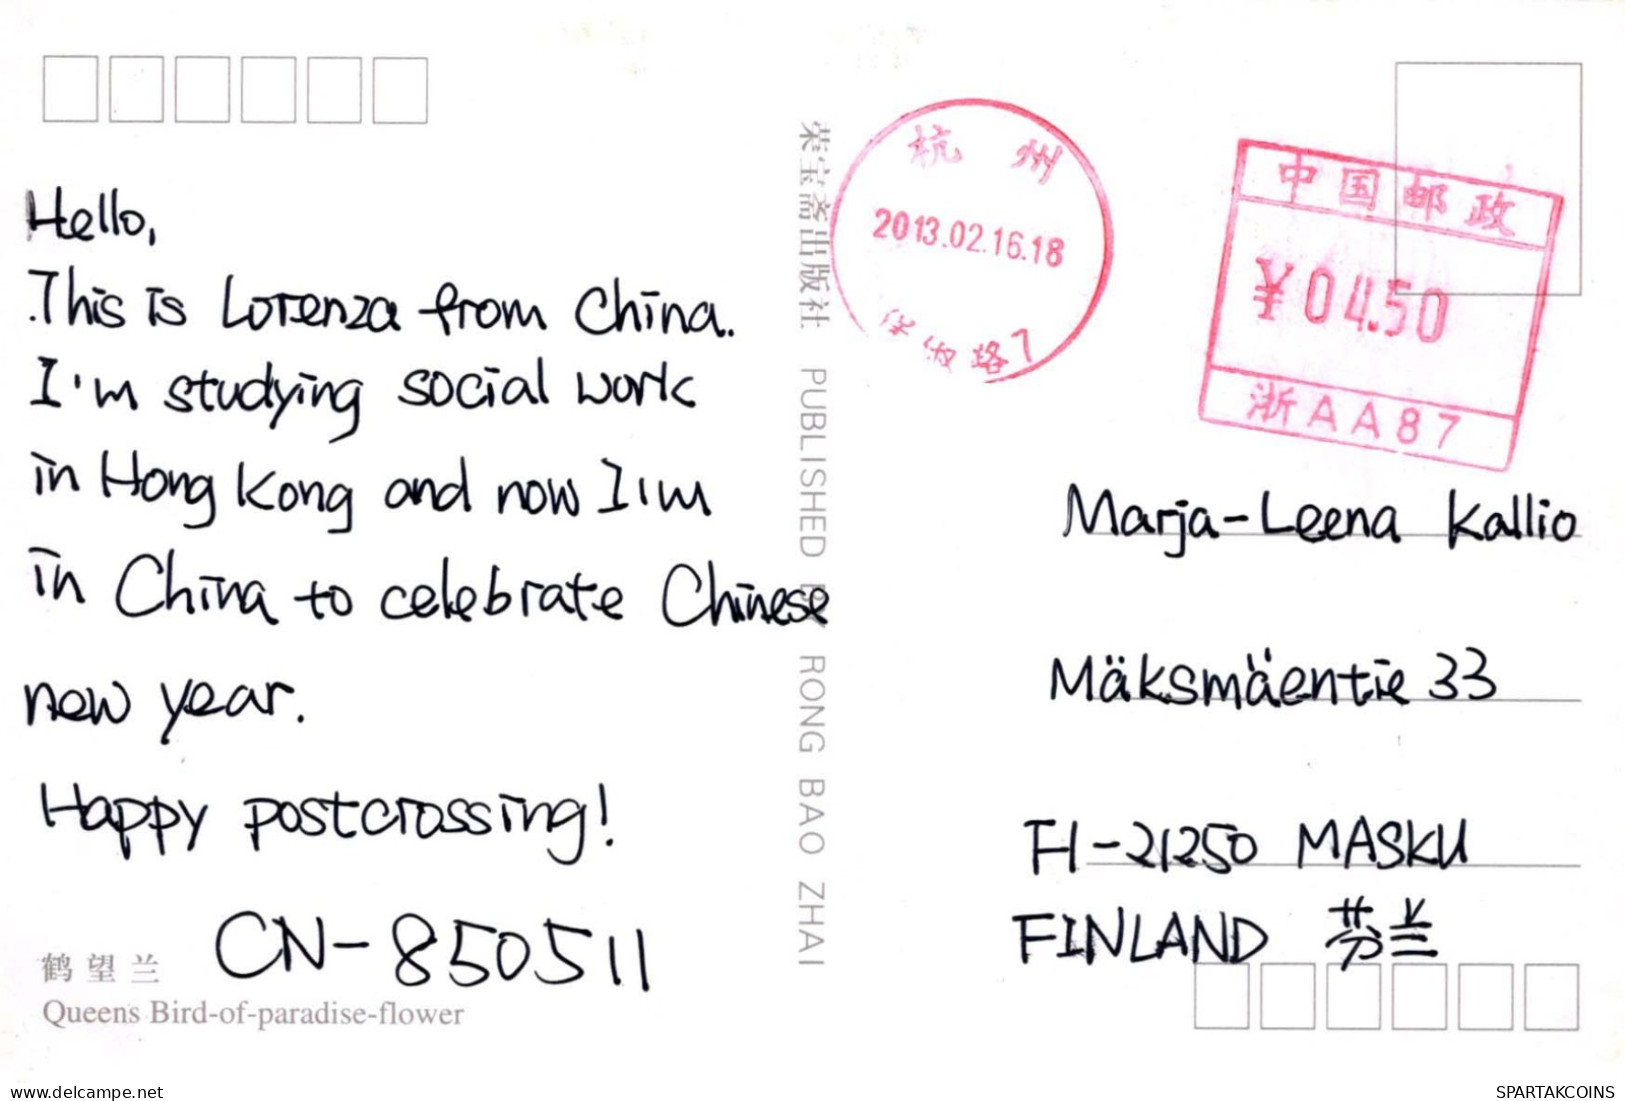 Hello,
This is Lorenza from China.
I'm studying social work
in Hong Kong and now I'm
in China to celebrate Chinese
new year.
Happy postcrossing!
CN-850511
鹤望兰
Queens Bird-of-paradise-flower
荣宝斋出版社 PUBLISHED BY RONG BAO ZHAI
杭州
2013.02.16.18
保俶路7
中国邮政
¥04.50
浙AA87
Marja-Leena Kallio
Mäksmäentie 33
FI-21250 MASKU
FINLAND 芬兰
delcampe.net
SPARTAKCOINS